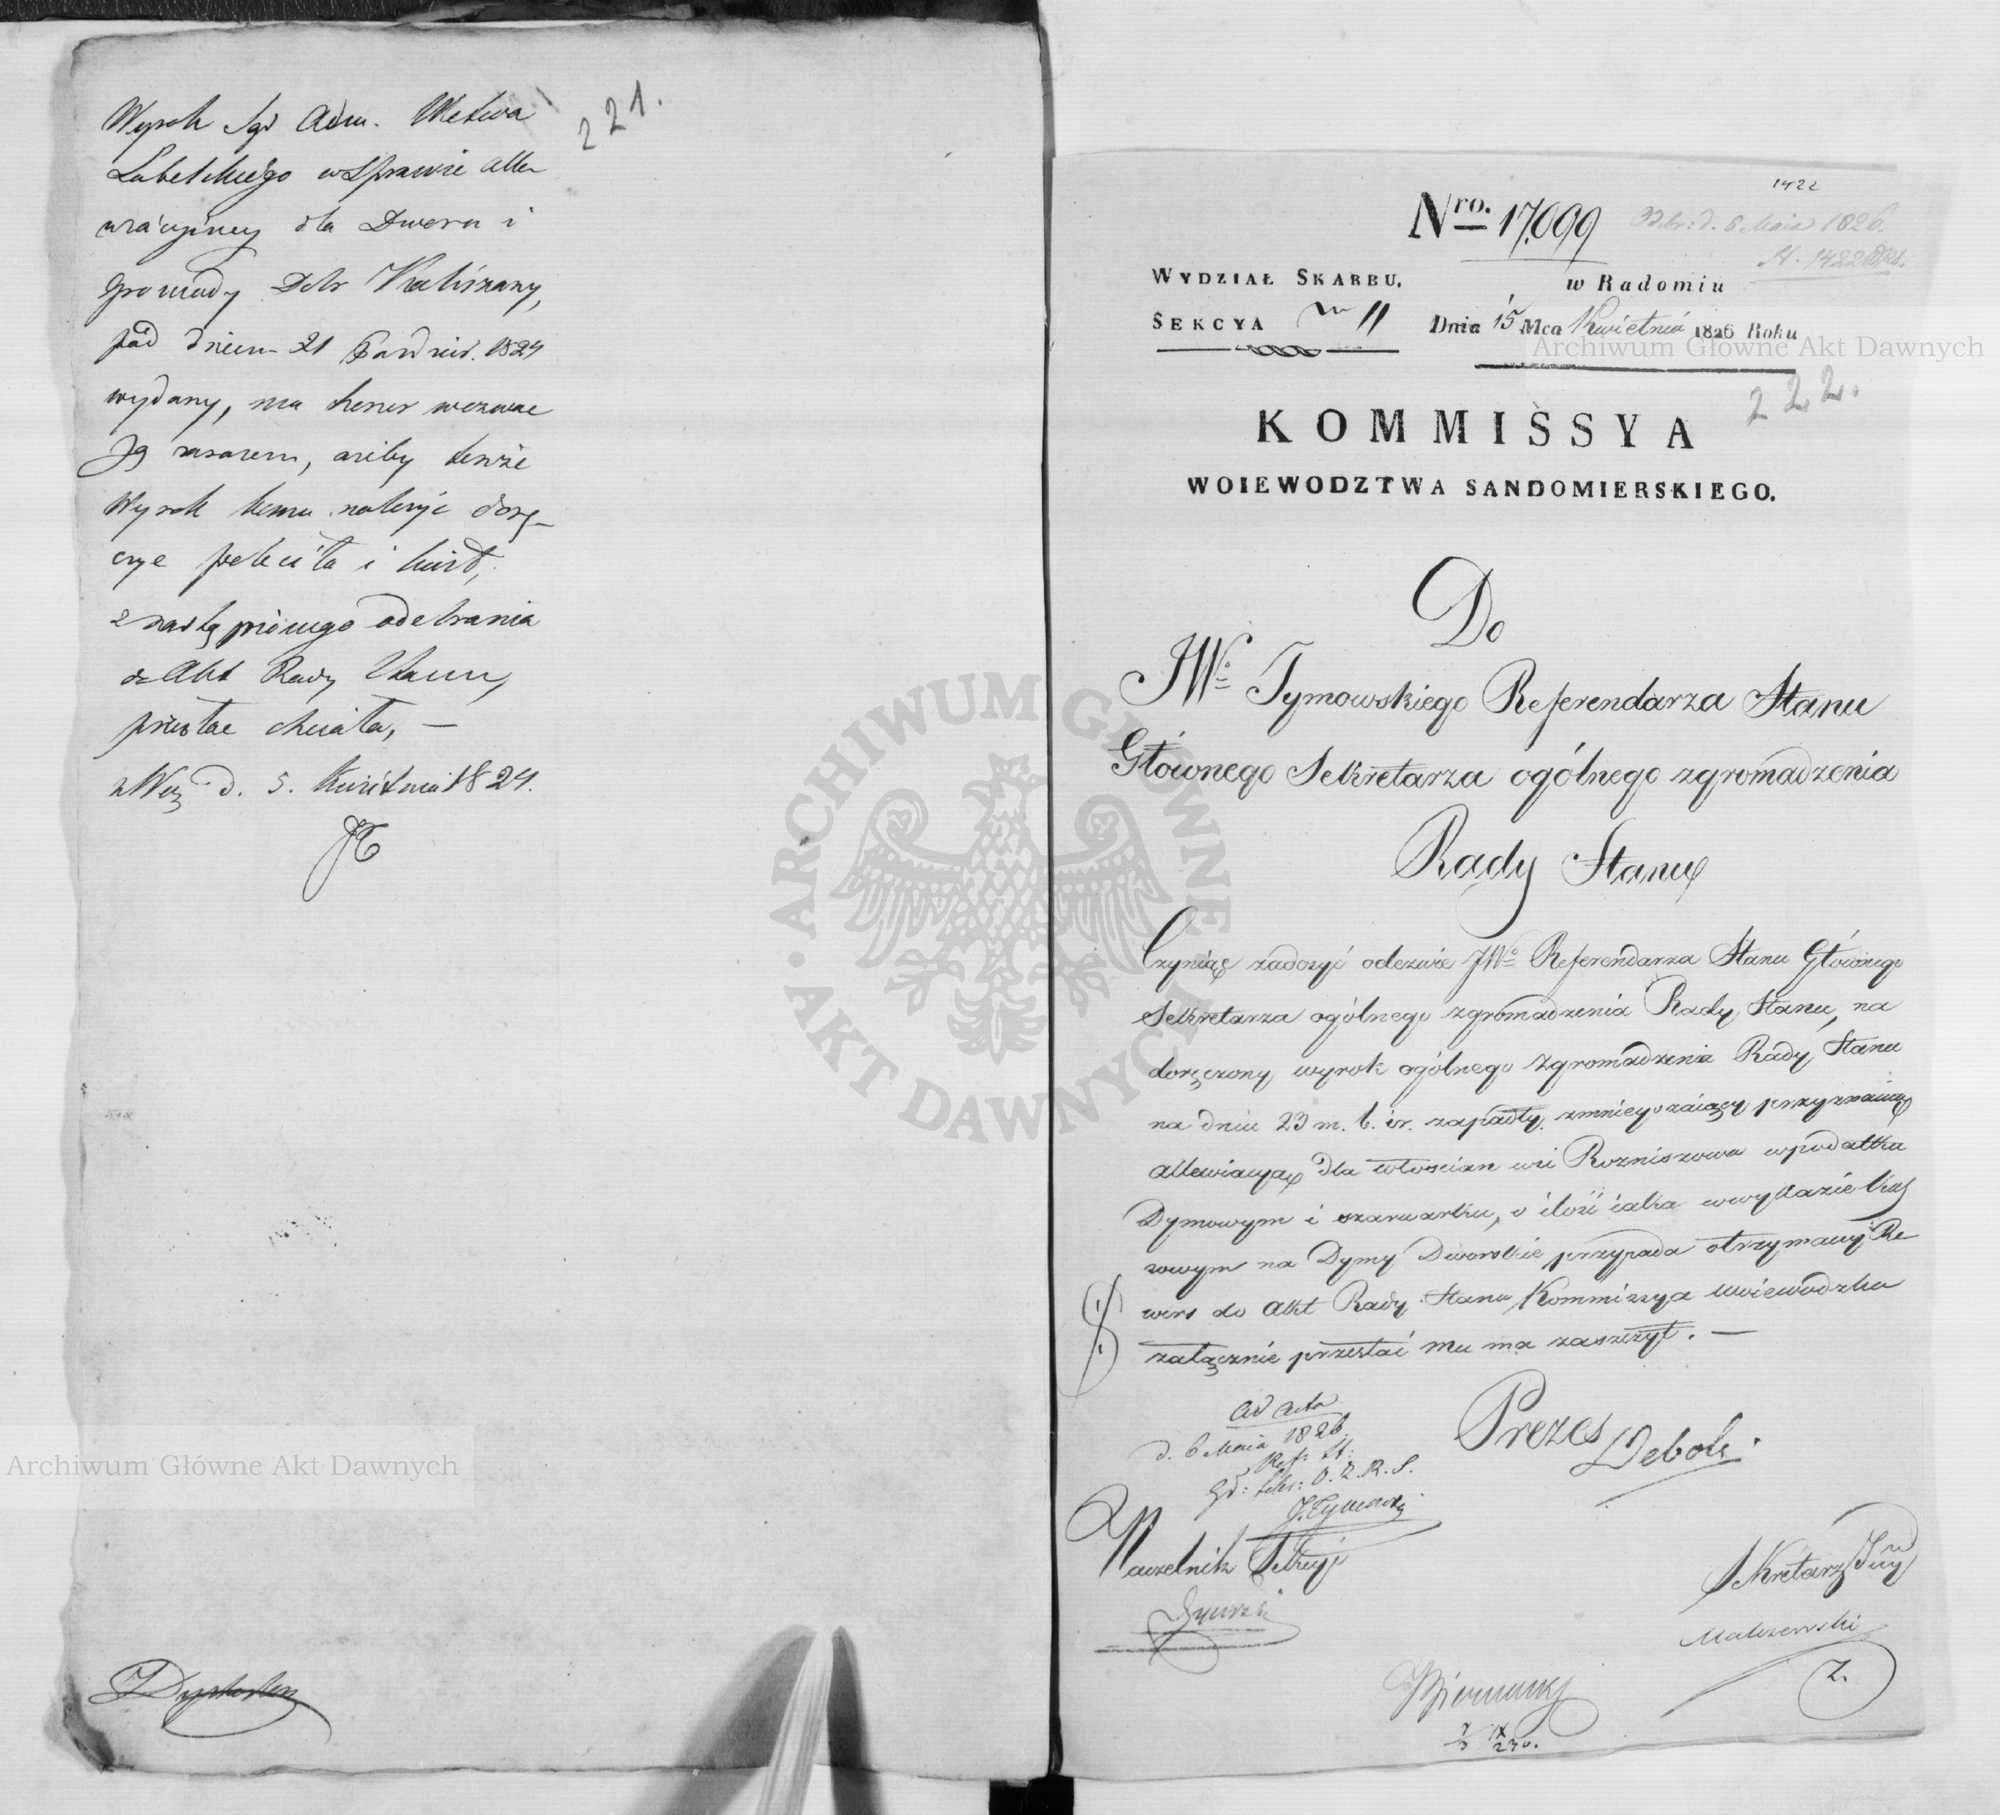 221.
Wyrok Sąd Adm. Wztwa
Lubelskiego w Sprawie alle-
wiacyiney dla Dworu i
gromady Dobr Kaliszany,
pod dniem 21 1824
wydany, ma honor wezwac
Ją razem, ażeby tenże
Wyrok komu należy dorę-
czyc poleciła i kwit,
z nastąpionego odebrania
do Akt Rady Stanu,
przesłac chciała, —
w Wwie d. 5. Kwietnia 1824.
1422
Nro. 17,099
Odebr: d. 6 Maia 1826.
N. 1422
WYDZIAŁ SKARBU.
w Radomiu
SEKCYA II
Dnia 15 Mca Kwietnia 1826 Roku
Archiwum Główne Akt Dawnych
222.
KOMMISSYA
WOIEWODZTWA SANDOMIERSKIEGO.
Do
JWo Tymowskiego Referendarza Stanu
Głównego Sekretarza ogólnego zgromadzenia
Rady Stanu
Czyniąc zadosyć odezwie JWo Referendarza Stanu Głównego
Sekretarza ogólnego zgromadzenia Rady Stanu, na
doręczony wyrok ogólnego zgromadzenia Rady Stanu
na dniu 23 m. b. i r. zapadły, zmnieyszaiący przyznaną
allewiacyą dla włoscian wsi Rozniszowa w podatku
Dymowym i szarwarku, o ilość iaka w wykazie
na Dymy Dworskie przypada otrzymany Re-
wers do Akt Rady Stanu Kommissya Woiewodzka
załącznie przesłać mu ma zaszczyt. —
Ad Acta
d. 6 Maia 1826.
Ref: St:
Gł: Sekr: O. Z. R. S.
J. Tymowski
Prezes
Deboli
Naczelnik Sekcyi
Sekretarz Jlny
Malczewski
ARCHIWUM GŁÓWNE AKT DAWNYCH
Archiwum Główne Akt Dawnych